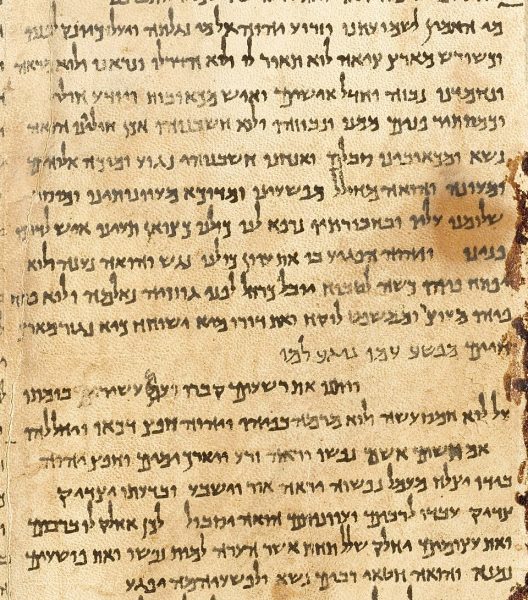 מי האמין לשמועתנו וזרוע יהוה אל מי נגלתה ויעל כיונק לפניו
וכשורש מארץ ציאה לוא תואר לו ולוא הדר לו ונראנו ולוא מראה
ונחמדנו נבזה וחדל אישים ואיש מכאובות ויודע חולי
וכמסתר פנים ממנו ונבוזהו ולוא חשבנוהו אכן חוליינו הואה
נשא ומכאובינו סבלם ואנחנו חשבנוהו נגוע ומוכה אלוהים
ומעונה והואה מחולל מפשעינו ומדוכא מעוונותינו ומוסר
שלומנו עליו ובחבורתיו נרפא לנו כולנו כצואן תעינו איש לדרכו
פנינו ויהוה הפגיע בו את עוון כולנו נגש והואה נענה ולוא
יפתח פיהו כשה לטבוח יובל כרחל לפני גוזזיה נאלמה ולוא פתח
פיהו מעוצר וממשפט לוקח ואת דורו מיא ישוחח כיא נגזר מארץ
חיים מפשע עמו נוגע למו
ויתנו את רשעים קברו ועם עשיר בומתו
על לוא חמס עשה ולוא מרמה בפיהו ויהוה חפץ דכאו ויחללהו
אם תשים אשם נפשו יראה זרע ויארך ימים וחפץ יהוה
בידו יצלח מעמל נפשוה יראה אור וישבע ובדעתו יצדיק
צדיק עבדו לרבים ועוונותם הואה יסבול לכן אחלק לו ברבים
ואת עצומים יחלק שלל תחת אשר הערה למות נפשו ואת פושעים
נמנא והואה חטאי רבים נשא ולפשעיהמה יפגע